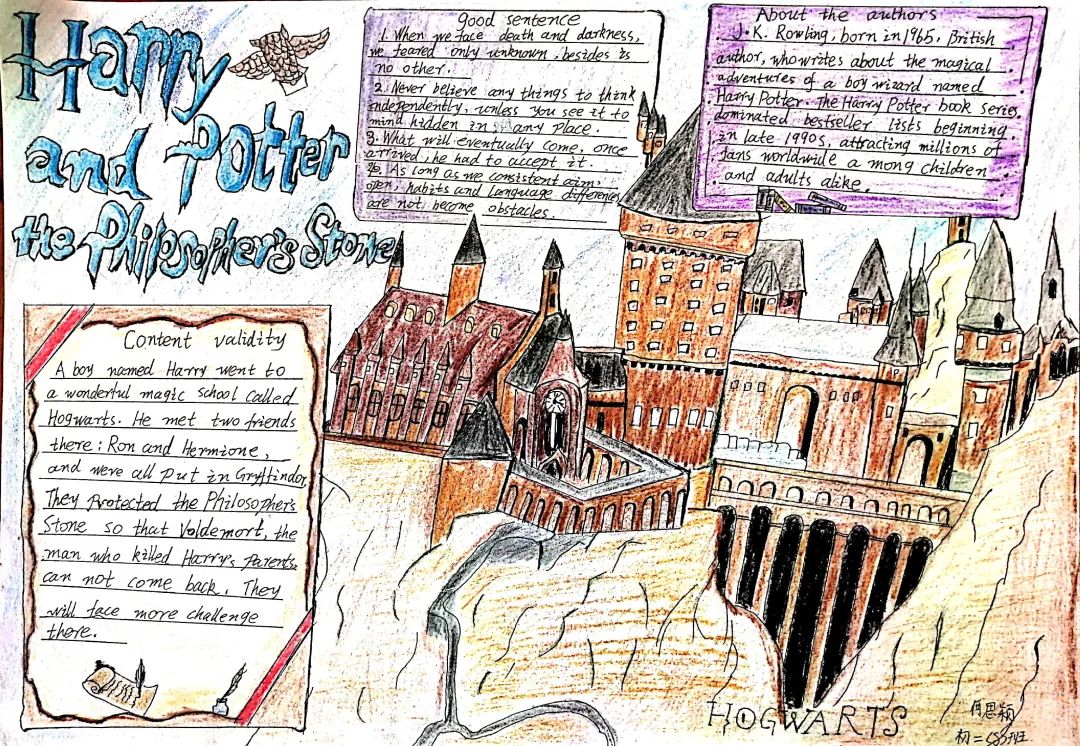 Harry
and Potter
the Philosopher's Stone
good sentence
1. When we face death and darkness,
we feared only unknown, besides is
no other.
2. Never believe any things to think
independently, unless you see it to
mind hidden in any place.
3. What will eventually come, once
arrived, he had to accept it.
As long as we consistent aim,
open, habits and language differences
are not become obstacles
About the authors
J.K. Rowling, born in 1965, British
author, who writes about the magical
adventures of a boy wizard named
Harry Potter. The Harry Potter book series
dominated bestseller lists beginning
in late 1990s, attracting millions of
fans worldwide a mong children
and adults alike.
Content validity
A boy named Harry went to
a wonderful magic school called
Hogwarts. He met two friends
there: Ron and Hermione,
and were all put in Gryffindor.
They protected the Philosopher's
Stone so that Voldemort, the
man who killed Harry's parents,
can not come back. They
will face more challenge
there.
HOGWARTS
何思颖
初二 班